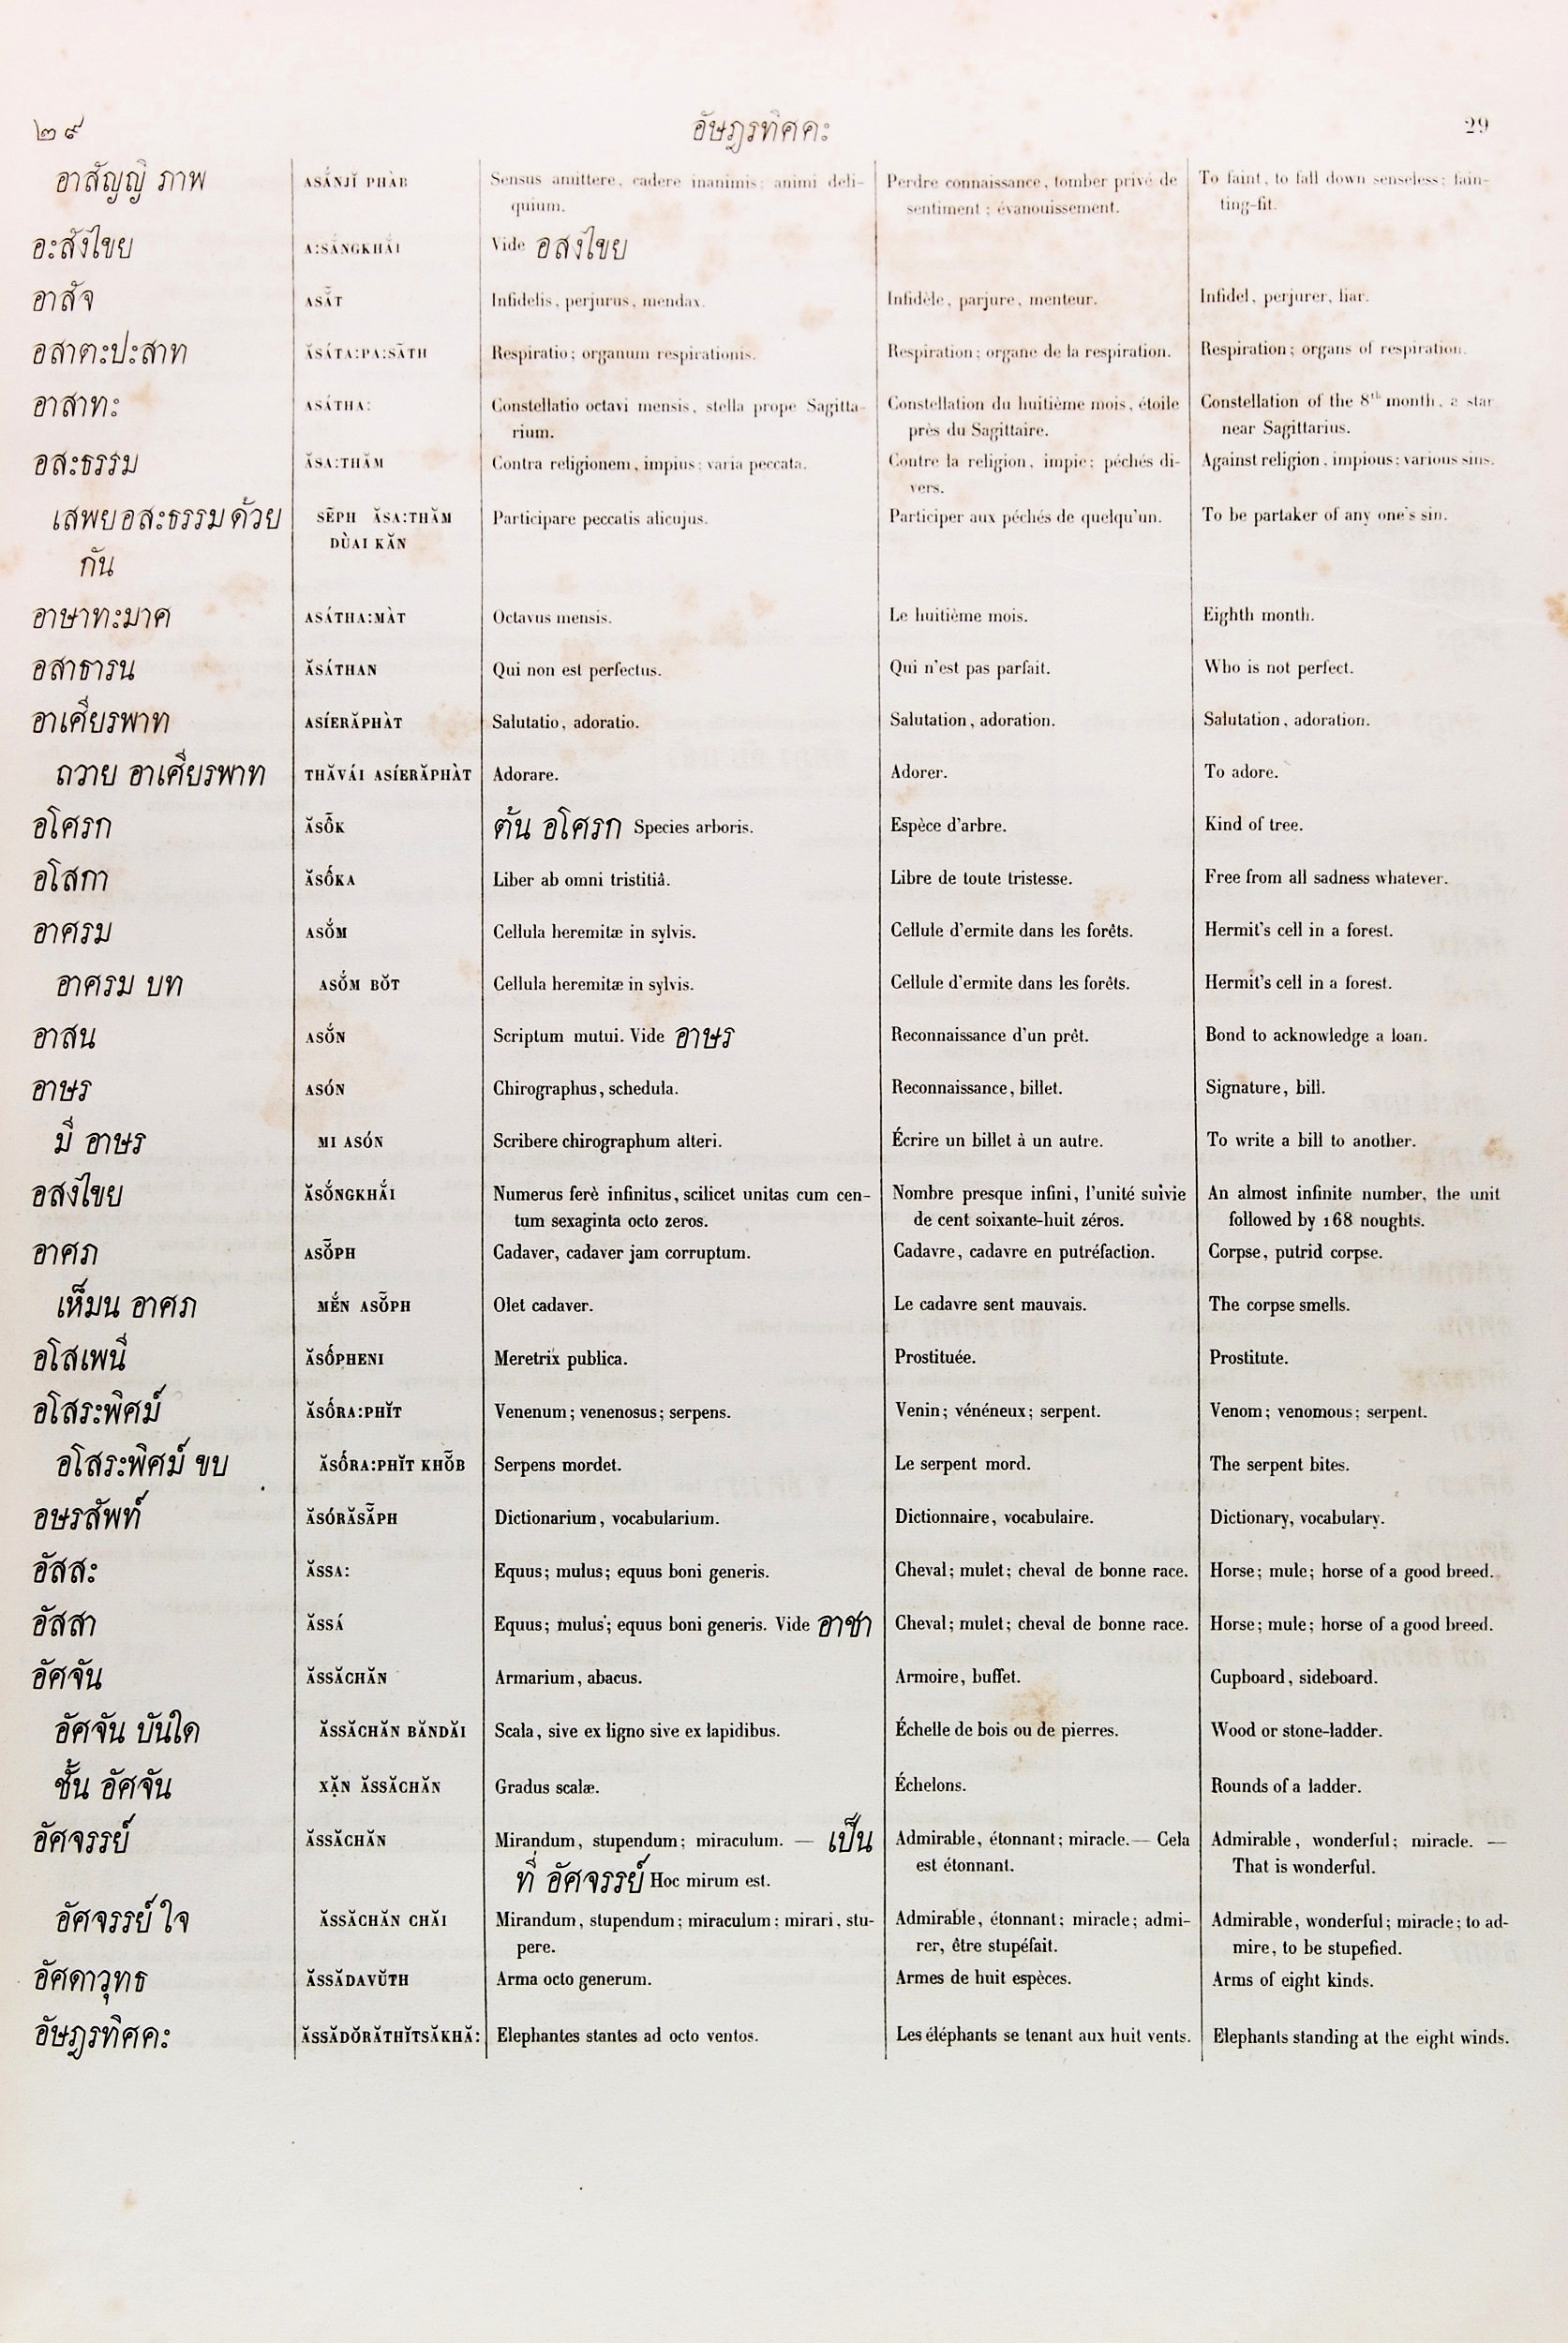 ๒๙ อัษฎรทิศคะ 29
อาสัญญิ ภาพ ASẮNJĬ PHÀB Sensus amittere, cadere inanimis; animi deli- Perdre connaissance, tomber privé de To faint, to fall down senseless; fain-
quium. sentiment; évanouissement. ting-fit.
อะสังไขย A:SẮNGKHẮI Vide อสงไขย
อาสัจ ASÃT Infidelis, perjurus, mendax. Infidèle, parjure, menteur. Infidel, perjurer, liar.
อสาตะปะสาท ĂSÁTA:PA:SÃTH Respiratio; organum respirationis. Respiration; organe de la respiration. Respiration; organs of respiration.
อาสาทะ ASÁTHA: Constellatio octavi mensis, stella prope Sagitta- Constellation du huitième mois, étoile Constellation of the 8th month, a star
rium. près du Sagittaire. near Sagittarius.
อสะธรรม ĂSA:THĂM Contra religionem, impius; varia peccata. Contre la religion, impie; péchés di- Against religion, impious; various sins.
vers.
เสพยอสะธรรมด้วย SẼPH ĂSA:THĂM Participare peccatis alicujus. Participer aux péchés de quelqu'un. To be partaker of any one's sin.
กัน DÙAI KĂN
อาษาทะมาศ ASÁTHA:MÀT Octavus mensis. Le huitième mois. Eighth month.
อสาธารน ĂSÁTHAN Qui non est perfectus. Qui n'est pas parfait. Who is not perfect.
อาเศียรพาท ASÍERĂPHÀT Salutatio, adoratio. Salutation, adoration. Salutation, adoration.
ถวาย อาเศียรพาท THĂVÁI ASÍERĂPHÀT Adorare. Adorer. To adore.
อโศรก ĂSỖK ต้น อโศรก Species arboris. Espèce d'arbre. Kind of tree.
อโสกา ĂSỐKA Liber ab omni tristitiâ. Libre de toute tristesse. Free from all sadness whatever.
อาศรม ASŎ́M Cellula heremitæ in sylvis. Cellule d'ermite dans les forêts. Hermit's cell in a forest.
อาศรม บท ASŎ́M BŎT Cellula heremitæ in sylvis. Cellule d'ermite dans les forêts. Hermit's cell in a forest.
อาสน ASŎ́N Scriptum mutui. Vide อาษร Reconnaissance d'un prêt. Bond to acknowledge a loan.
อาษร ASÓN Chirographus, schedula. Reconnaissance, billet. Signature, bill.
มี อาษร MI ASÓN Scribere chirographum alteri. Écrire un billet à un autre. To write a bill to another.
อสงไขย ĂSŎ́NGKHẮI Numerus ferè infinitus, scilicet unitas cum cen- Nombre presque infini, l'unité suivie An almost infinite number, the unit
tum sexaginta octo zeros. de cent soixante-huit zéros. followed by 168 noughts.
อาศภ ASŎ̃PH Cadaver, cadaver jam corruptum. Cadavre, cadavre en putréfaction. Corpse, putrid corpse.
เห็มน อาศภ MĔ́N ASŎ̃PH Olet cadaver. Le cadavre sent mauvais. The corpse smells.
อโสเพนี ĂSỐPHENI Meretrix publica. Prostituée. Prostitute.
อโสระพิศม์ ĂSỐRA:PHĬT Venenum; venenosus; serpens. Venin; vénéneux; serpent. Venom; venomous; serpent.
อโสระพิศม์ ขบ ĂSỐRA:PHĬT KHŎ̃B Serpens mordet. Le serpent mord. The serpent bites.
อษรสัพท์ ĂSÓRĂSẴPH Dictionarium, vocabularium. Dictionnaire, vocabulaire. Dictionary, vocabulary.
อัสสะ ĂSSA: Equus; mulus; equus boni generis. Cheval; mulet; cheval de bonne race. Horse; mule; horse of a good breed.
อัสสา ĂSSÁ Equus; mulus; equus boni generis. Vide อาชา Cheval; mulet; cheval de bonne race. Horse; mule; horse of a good breed.
อัศจัน ĂSSĂCHĂN Armarium, abacus. Armoire, buffet. Cupboard, sideboard.
อัศจัน บันใด ĂSSĂCHĂN BĂNDĂI Scala, sive ex ligno sive ex lapidibus. Échelle de bois ou de pierres. Wood or stone-ladder.
ชั้น อัศจัน XẶN ĂSSĂCHĂN Gradus scalæ. Échelons. Rounds of a ladder.
อัศจรรย์ ĂSSĂCHĂN Mirandum, stupendum; miraculum. — เป็น Admirable, étonnant; miracle.— Cela Admirable, wonderful; miracle. —
ที่ อัศจรรย์ Hoc mirum est. est étonnant. That is wonderful.
อัศจรรย์ ใจ ĂSSĂCHĂN CHĂI Mirandum, stupendum; miraculum; mirari, stu- Admirable, étonnant; miracle; admi- Admirable, wonderful; miracle; to ad-
pere. rer, être stupéfait. mire, to be stupefied.
อัศดาวุทธ ĂSSĂDAVŬTH Arma octo generum. Armes de huit espèces. Arms of eight kinds.
อัษฎรทิศคะ ĂSSĂDŎRĂTHĬTSĂKHĂ: Elephantes stantes ad octo ventos. Les éléphants se tenant aux huit vents. Elephants standing at the eight winds.